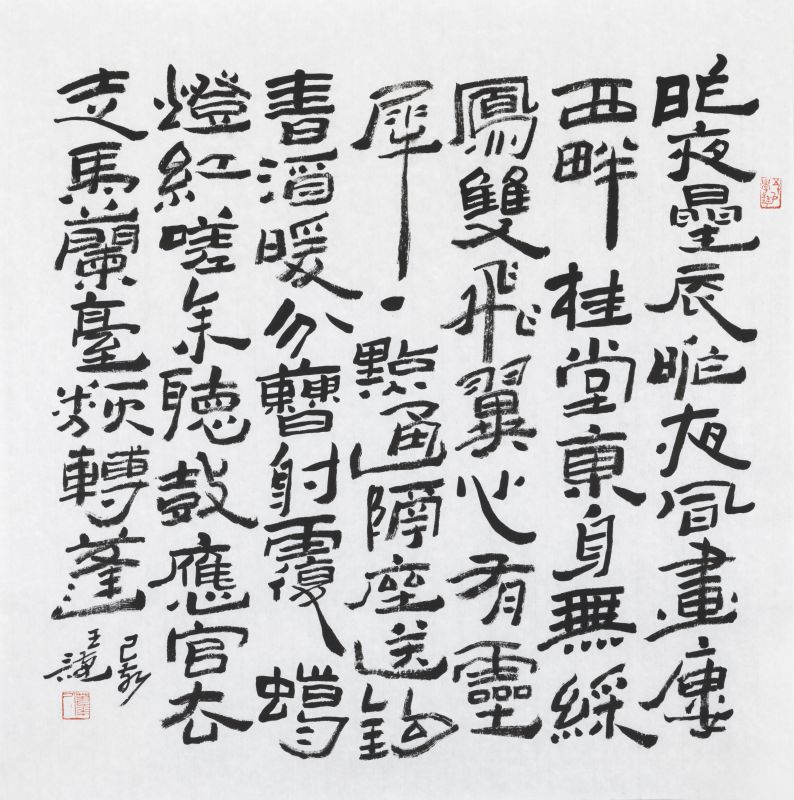 昨夜星辰昨夜風畫廔
西畔桂堂東身無綵
鳳雙飛翼心有靈
犀一點通隔座送鉤
春酒暖分曹射覆蠟
燈紅嗟余聽鼓應官去
走馬蘭臺類轉蓬
己亥
王